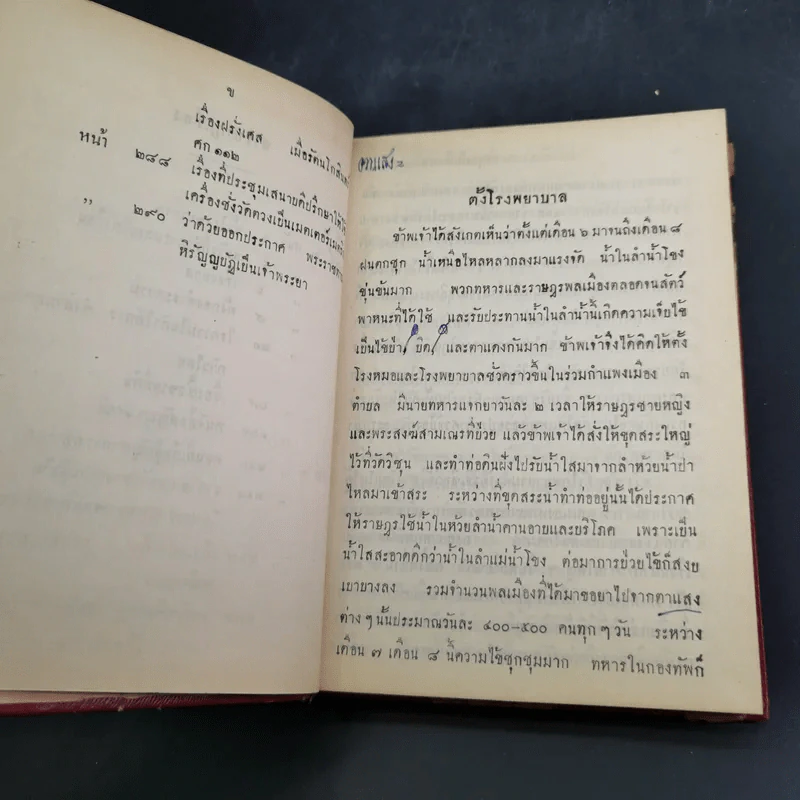 ข
เรื่องฝรั่งเศส เมื่อรัตนโกสินทร์
ศก ๑๑๒
หน้า ๒๘๘ เรื่องที่ประชุมเสนาบดีปรึกษาให้ใช้
เครื่องชั่งวัดตวงเป็นเมตเตอร์
” ๒๙๐ ว่าด้วยออกประกาศ
หิรัญญบัฏเป็นเจ้าพระยา
ตั้งโรงพยาบาล
ข้าพเจ้าได้สังเกตเห็นว่าตั้งแต่เดือน ๖ มาจนถึงเดือน ๘
ฝนตกชุก น้ำเหนือไหลหลากลงมาแรงจัด น้ำในลำน้ำโขง
ขุ่นข้นมาก พวกทหารและราษฎรพลเมืองตลอดจนสัตว์
พาหนะที่ได้ใช้ และรับประทานน้ำในลำน้ำนี้เกิดความเจ็บไข้
เป็นไข้ป่า, บิด, และตาแดงกันมาก ข้าพเจ้าจึงได้คิดให้ตั้ง
โรงหมอและโรงพยาบาลชั่วคราวขึ้นในร่วมกำแพงเมือง ๓
ตำบล มีนายทหารแจกยาวันละ ๒ เวลาให้ราษฎรชายหญิง
และพระสงฆ์สามเณรที่ป่วย แล้วข้าพเจ้าได้สั่งให้ขุดสระใหญ่
ไว้ที่วัดวิชุน และทำท่อดินฝังไปรับน้ำใสมาจากลำห้วยน้ำป่า
ไหลมาเข้าสระ ระหว่างที่ขุดสระน้ำทำท่ออยู่นั้นได้ประกาศ
ให้ราษฎรใช้น้ำในห้วยลำน้ำคานอาบและบริโภค เพราะเป็น
น้ำใสสะอาดดีกว่าน้ำในลำแม่น้ำโขง ต่อมาการป่วยไข้ก็สงบ
เบาบางลง รวมจำนวนพลเมืองที่ได้มาขอยาไปจากตาแสง
ต่าง ๆ นั้นประมาณวันละ ๔๐๐–๕๐๐ คนทุก ๆ วัน ระหว่าง
เดือน ๗ เดือน ๘ นี้ความไข้ชุกชุมมาก ทหารในกองทัพก็